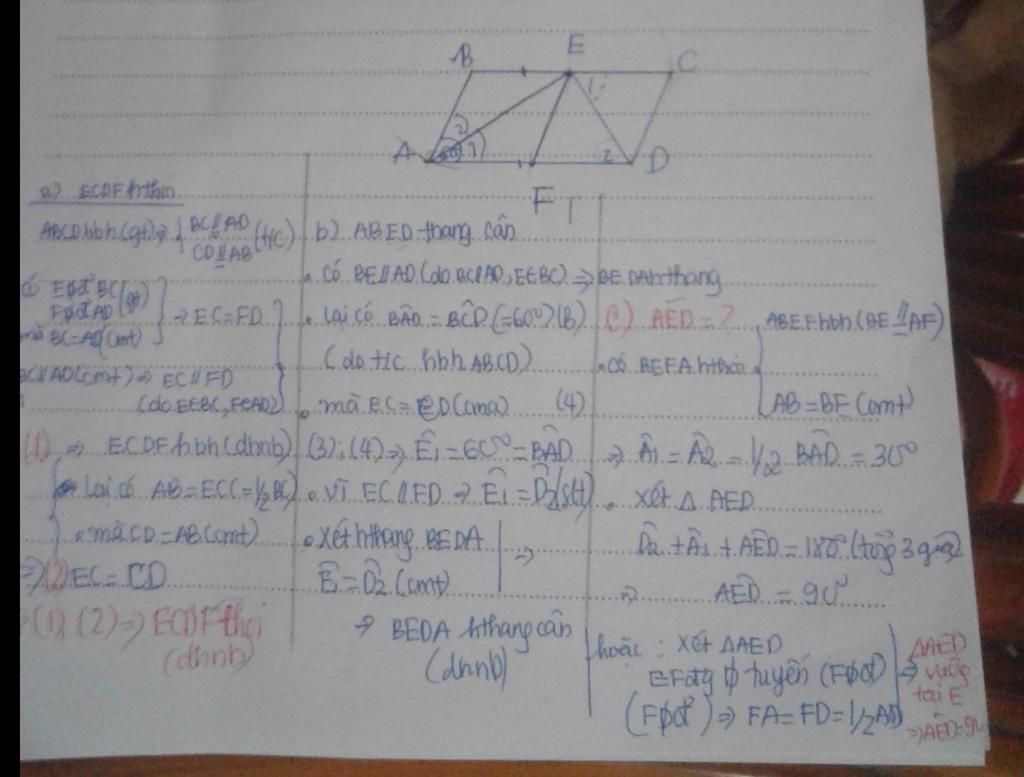 B E C
A F D
a) ECDF hthoi
ABCD hbh (gt) ⇒ { BC//AD
CD//AB (t/c)
BC (gt)
AD (gt)
BC = AD (cmt)
⇒ EC = FD
BC//AD (cmt) ⇒ EC//FD
(do E∈BC, F∈AD)
(1) ⇒ ECDF hbh (dhnb)
Lại có AB = EC (= 1/2 BC)
mà CD = AB (cmt)
⇒ (2) EC = CD
(1), (2) ⇒ ECDF thoi
(dhnb)
b) ABED thang cân
. có BE//AD (do BC//AD, E∈BC) ⇒ BEDA hthang
. Lại có BÂD = BĈD (= 60°) (3)
(do t/c hbh ABCD)
. mà EC = CD (cma) (4)
(3), (4) ⇒ Ê1 = 60° = BÂD
. Vì EC//FD ⇒ Ê1 = D̂2 (slt)
. Xét hthang BEDA
Ê1 = D̂2 (cmt) ⇒
⇒ BEDA hthang cân
(dhnb)
c) AÊD = ?
. có BEFA hthoi
ABEF hbh (BE//AF)
AB = BE (cmt)
⇒ Â1 = Â2 = 1/2 BÂD = 30°
. Xét Δ AED
D̂2 + Â1 + AÊD = 180° (tổng 3 góc)
⇒ AÊD = 90°
hoặc : Xét ΔAED
EF tuyến
⇒ FA = FD = 1/2 AD
⇒ ΔAED
vuông
tại E
⇒ AÊD = 90